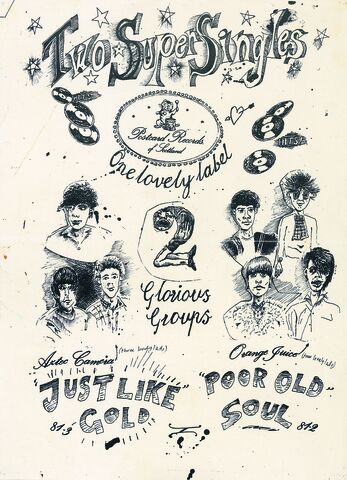 Two Super Singles
HITS!
Postcard Records
of Scotland
One lovely label
2
Glorious
Groups
Aztec Camera (three lovely lads)
Orange Juice (four lovely lads)
"JUST LIKE
GOLD"
81.3
"POOR OLD"
SOUL
81.2